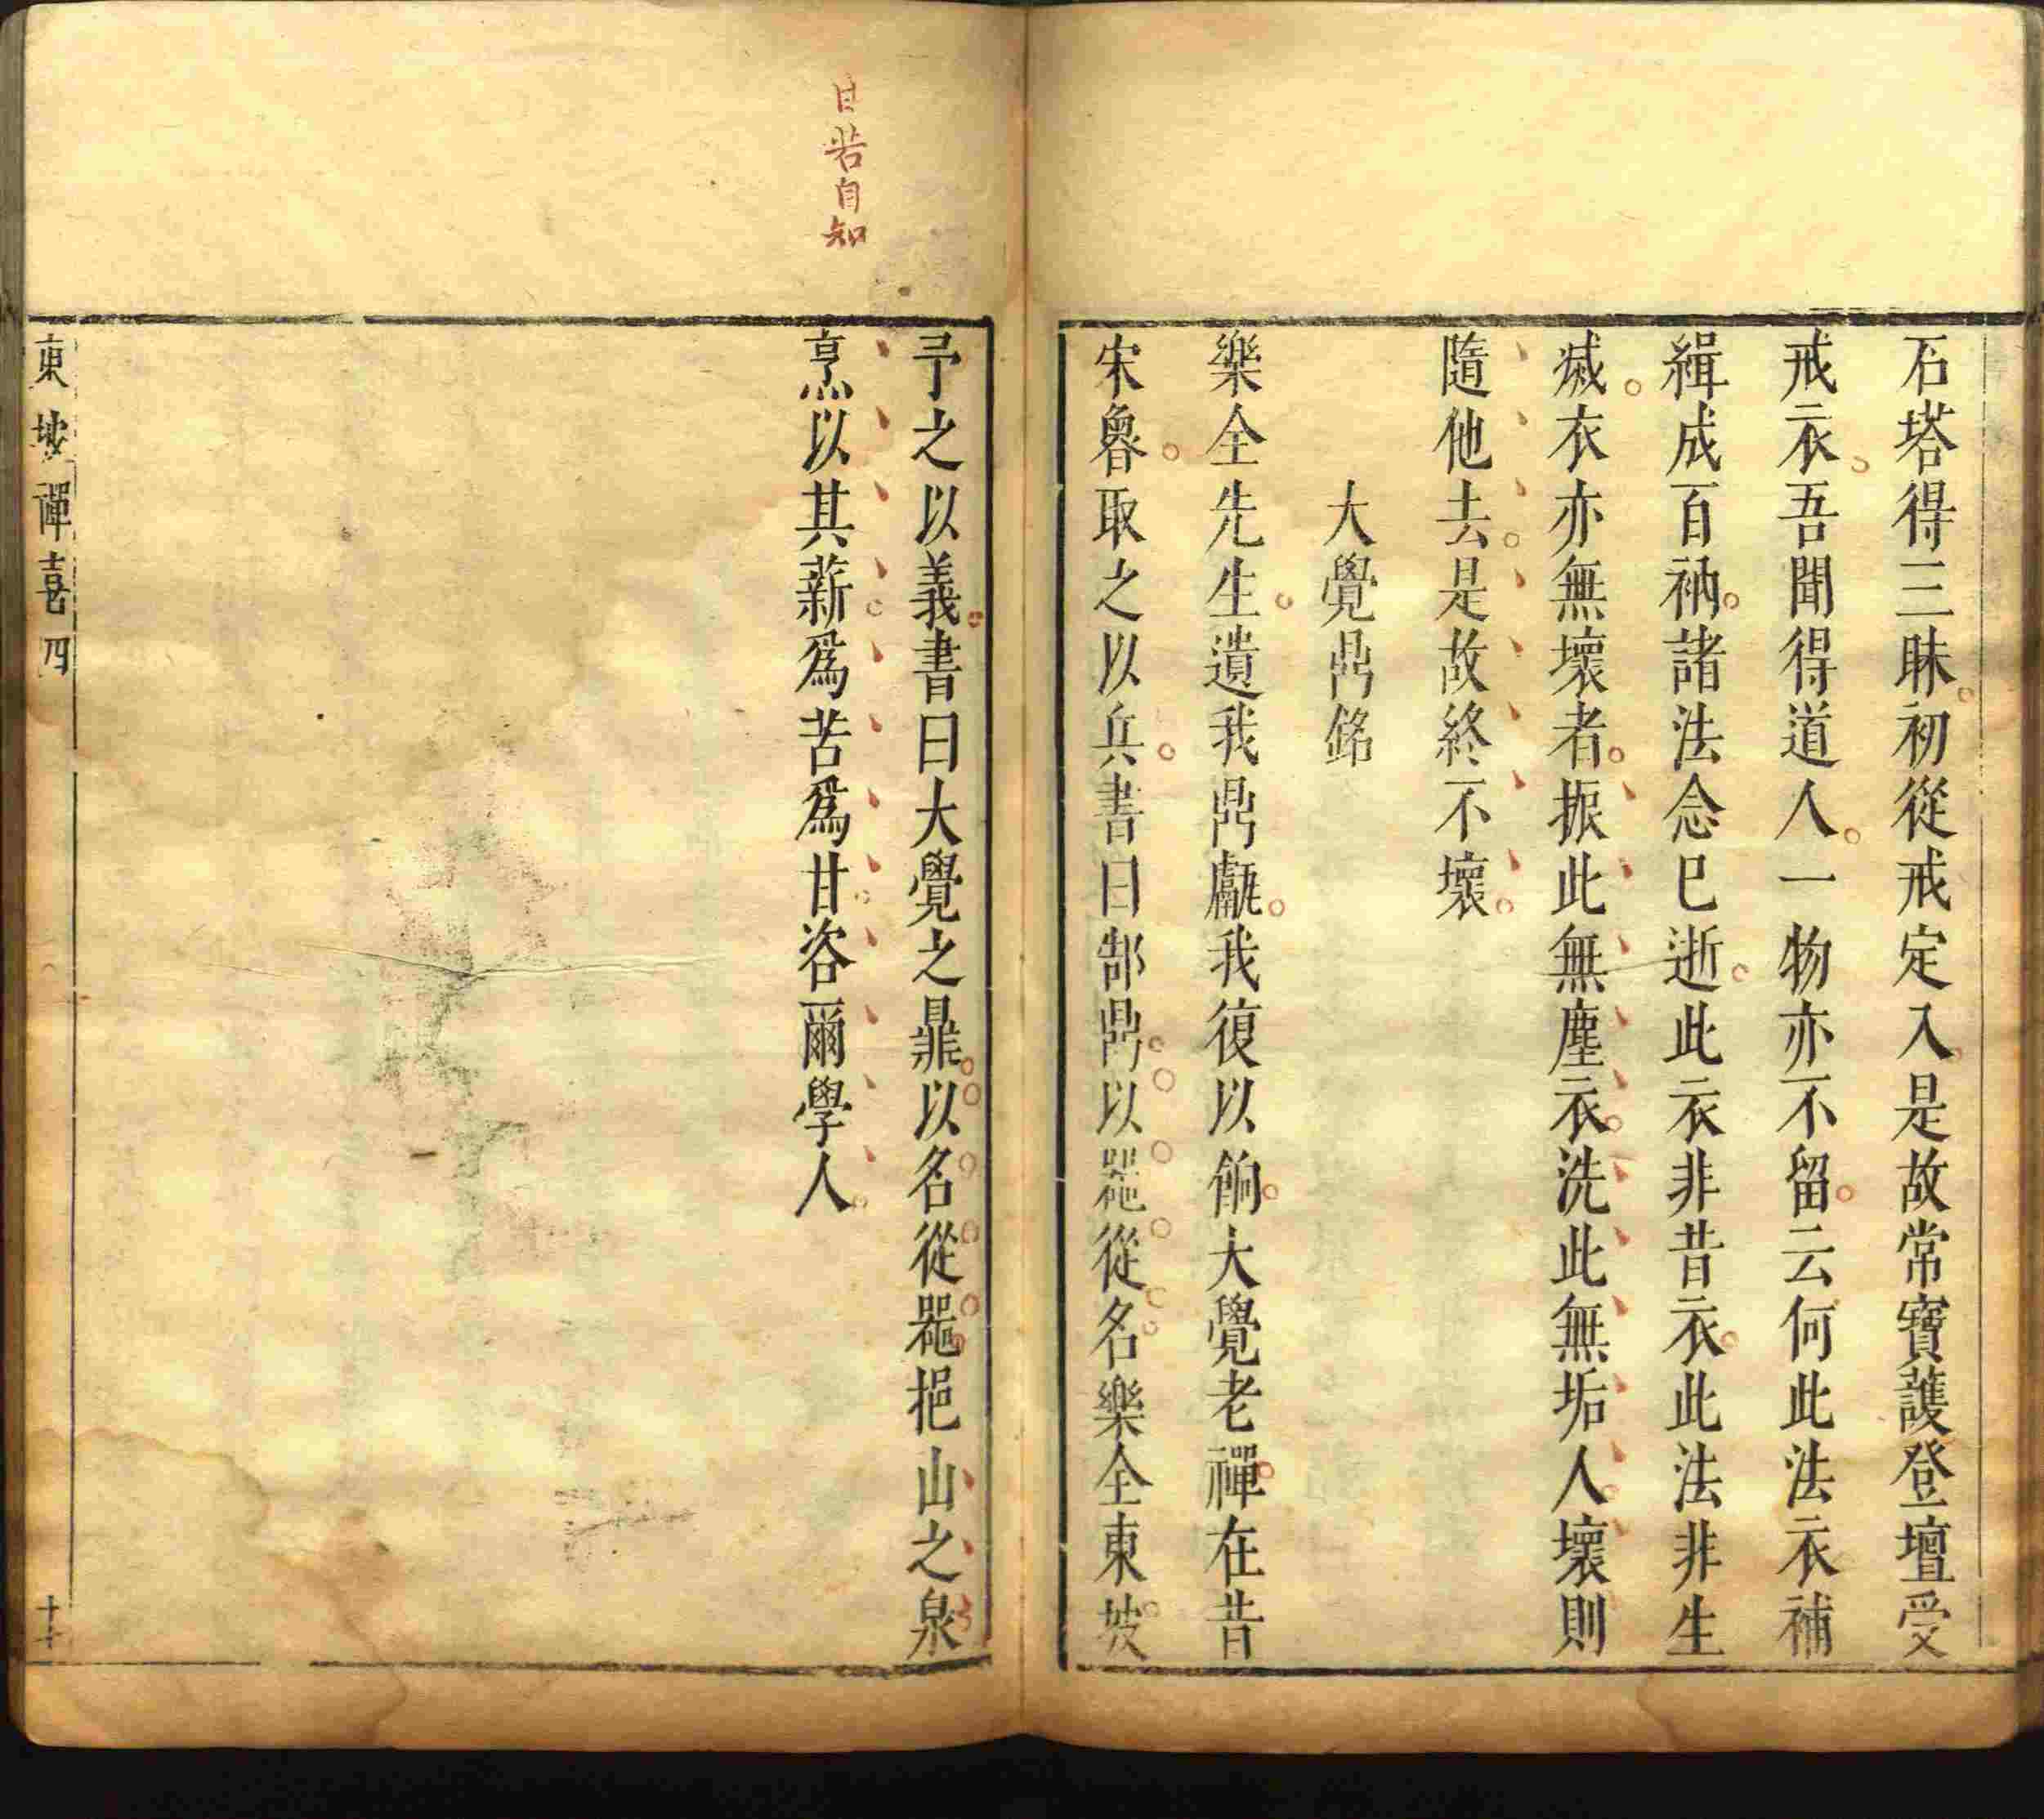 石塔得三昧初從戒定入是故常寶護登壇受
戒衣吾聞得道人一物亦不留云何此法衣補
緝成百衲諸法念已逝此衣非昔衣此法非生
滅衣亦無壞者振此無塵衣洗此無垢人壞則
隨他去是故終不壞
大覺鼎銘
樂全先生遺我鼎甗我復以餉大覺老禪在昔
宋魯取之以兵書曰郜鼎以器從名樂全東坡
予之以義書曰大覺之鼎以名從器挹山之泉
烹以其薪爲苦爲甘咨爾學人
甘苦自知
東坡禪喜四